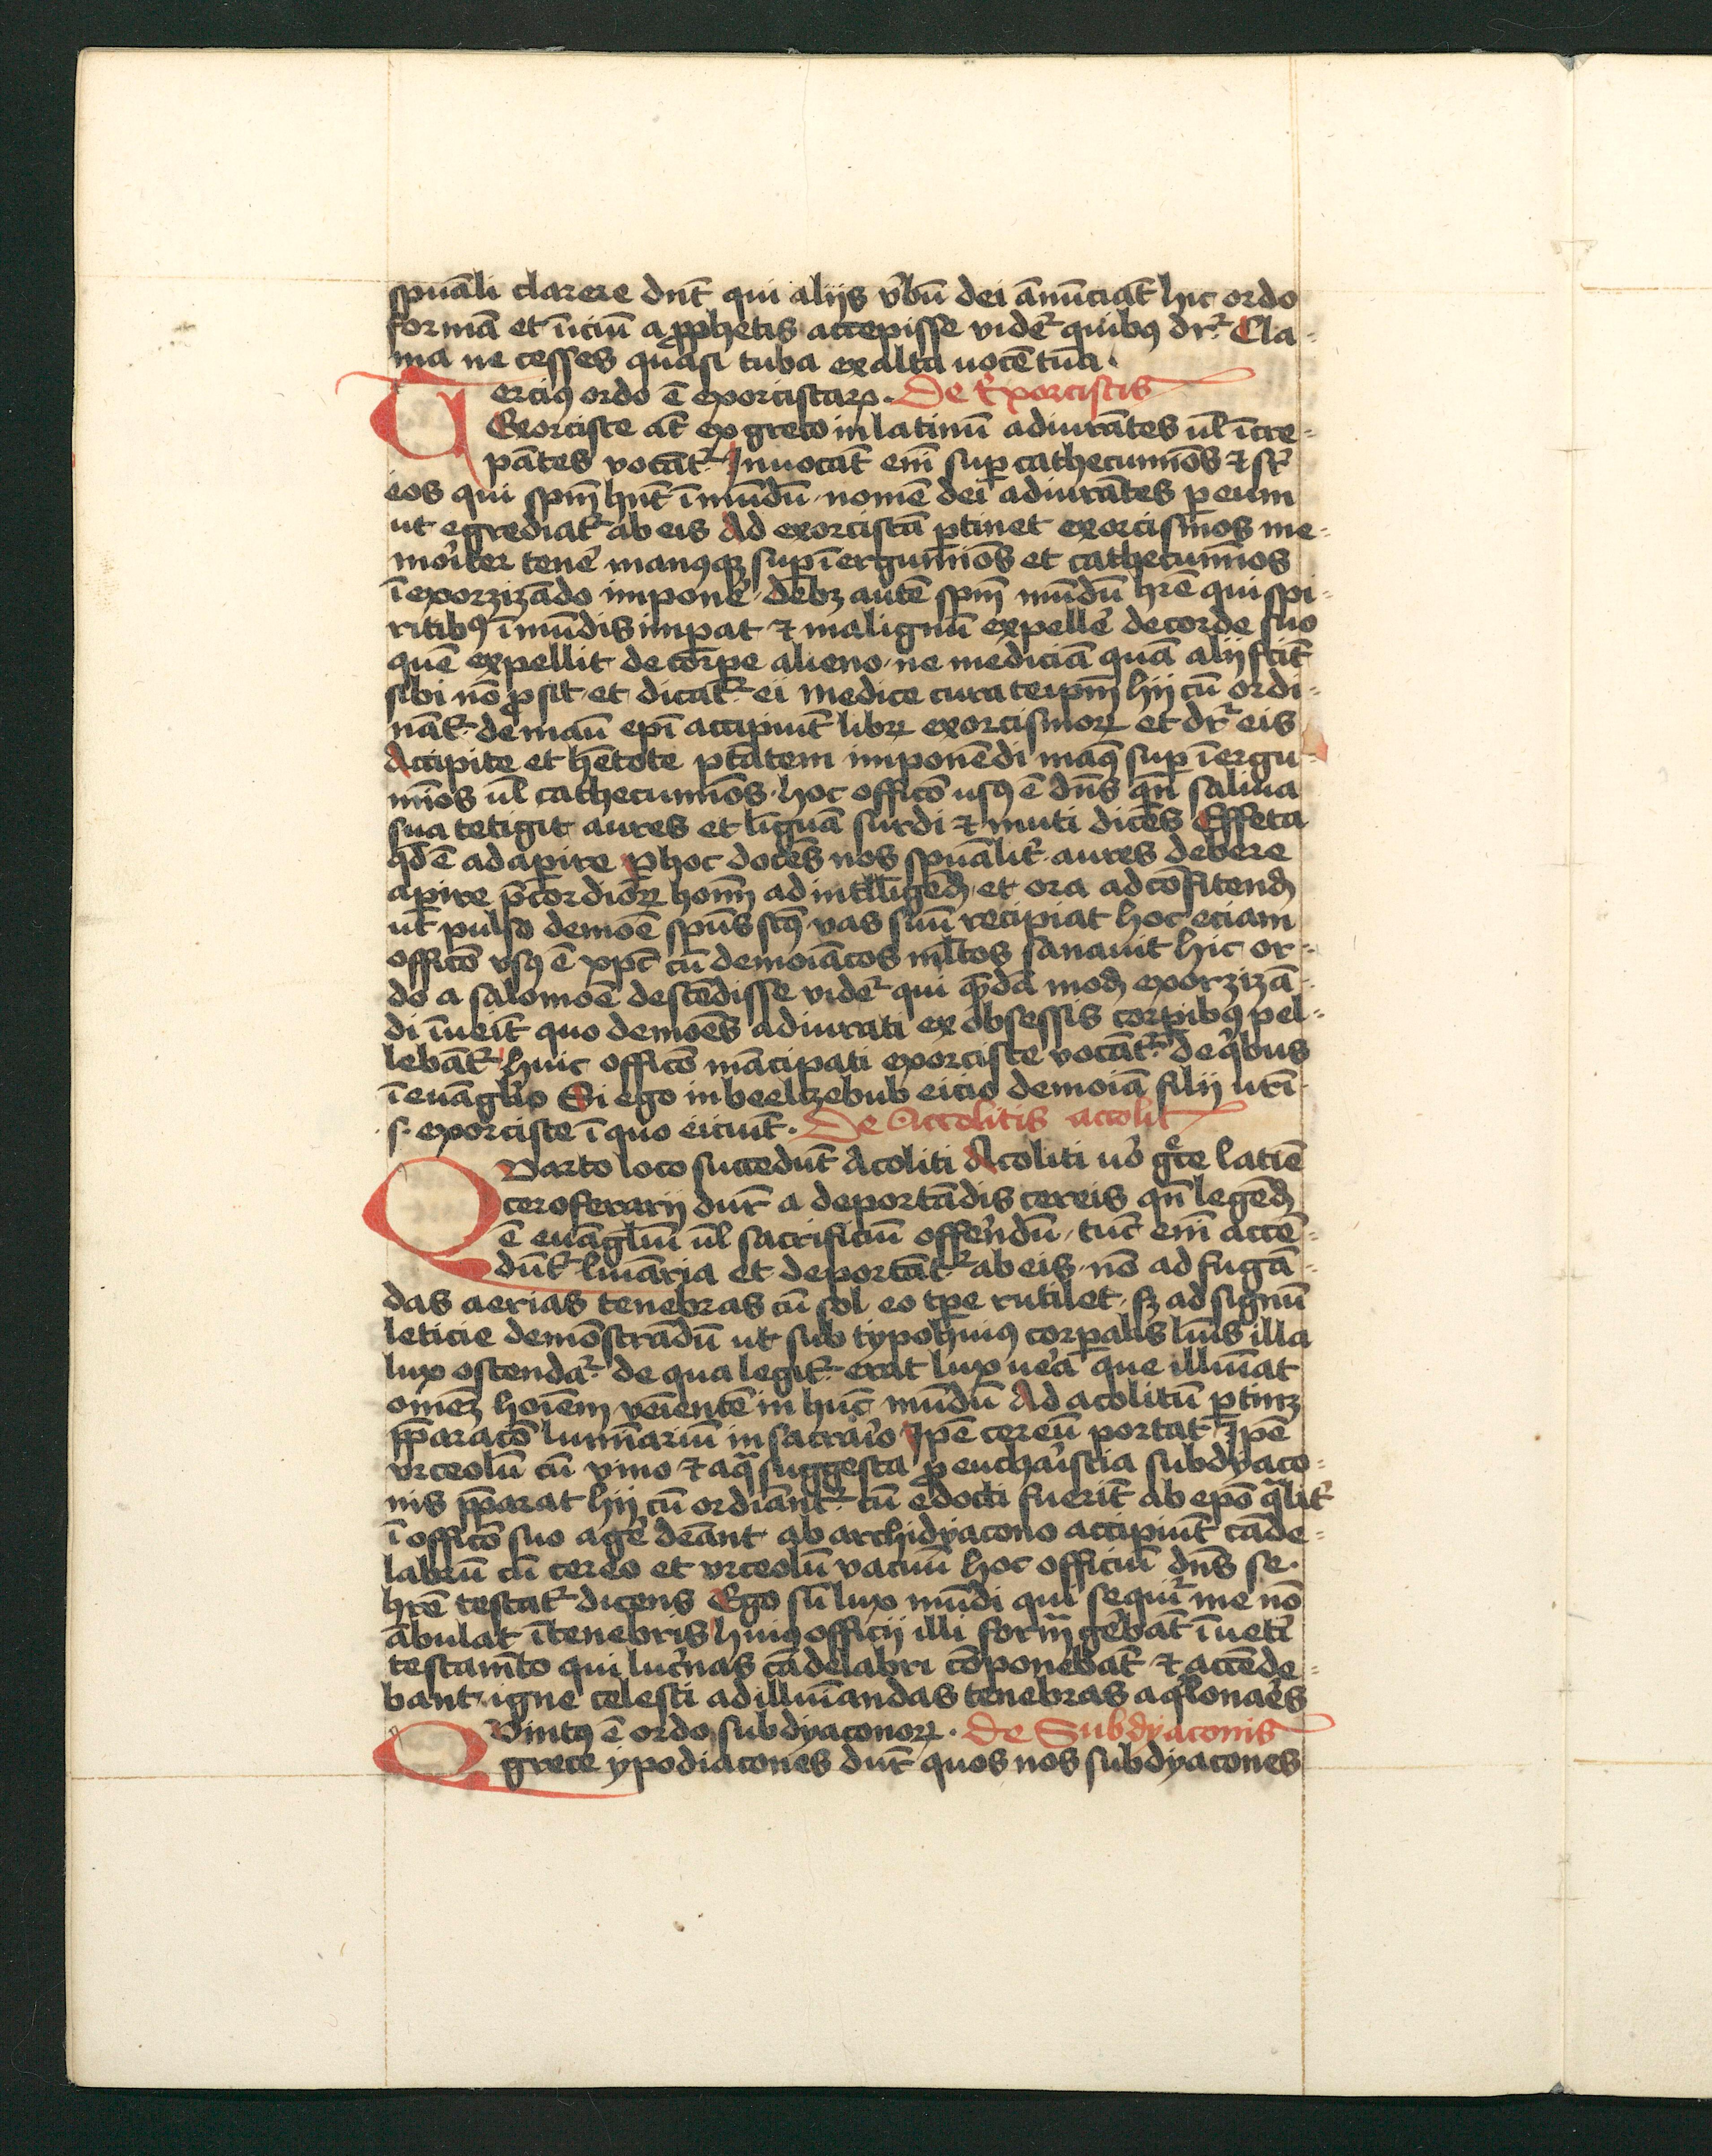 spuāli clarere dnt̄ qui alijs v̓bū dei ānūciāt hic ordo
formā et īiciū a ꝓphetis accepisse videt᷑ quibꝰ dr᷑ Cla-
ma ne cesses quasi tuba exalta uocē tuā.
Terciꝰ ordo ē exorcistaꝝ. De Exorcistis
Exorciste at̄ ex greco in latinū adiurātes ul̄ īcre-
pātes vocāt᷑ Inuocāt em̄ sup cathecumīos ⁊ sr̄
eos qui spm̄ hn̄t īmūdū nomē dei adiurātes ꝑ eum
ut egrediat᷑ ab eis Ad exorcistā ꝑtinet exorcismos me-
mor̓iter tener̓ manꝰqꝫ sup īergumīos et cathecumīos
ī exorzizādo imponer̓ debꝫ autē spm̄ mūdū hr̄e qui spi-
ritibꝰ īmūdis impat ⁊ malignū expeller̓ de corde suo
quē expellit de corpe alieno ne mediciā quā alij fcīt
sibi nō ꝓsit et dicat᷑ ei Medice cura teipm̄ hij cū ordi-
nāt᷑ de manu epī accipiūt libꝝ exorcismoꝝ et dr᷑ eis
Accipite et hētote ptātem imponēdi manꝰ sup īergu-
mīos ul̄ cathecumīos. hoc officō usꝰ ē dn̄s qn̄ saliua
sua tetigit aures et liguā surdi ⁊ muti dicēs Effeta
qd̄ ē adapire ꝑ hoc docēs nos spuālit̓ aures debere
apire p̄cordioꝝ hoīm ad intelligēd et ora ad cōfitend
ut̄ pulso demōe spūs scꝰ vas suū recipiat hoc eciam
officō vsꝰ ē xpc̄ cū demoīacos ml̄tos sanauit hic or-
do a salomōe descēdisse videt᷑ qui qdā mod exorzizā-
di īueīt quo demōes adiurati ex obsessis corpibꝰ pel-
lebāt᷑ huic officō mācipati exorciste vocāt᷑ de q̓bus
ī euāglio Si ego in beelzebub eicio demoīa filij urī
.s. exorciste ī quo eiciūt. De Accolitis accolit
Qvarto loco succedūt Acoliti Acoliti uō grc̄e latīe
ceroferarij dnr̄ a deportādis cereis qn̄ legēd
ē euāgliū ul̄ sacrificiū offerēdū tūc em̄ accē-
dūt᷑ lūaria et deportāt᷑ ab eis nō ad fugā-
das aerias tenebras cū sol eo tpe rutilet sꝫ ad signū
leticie demōstrādū ut sub typo huiꝰ corpalis lūis illa
lux ostendat᷑ de qua legit᷑ erat lux uer̓a que illūiat
omeꝫ hoīem veīentē in hūc mūdū Ad acolitū ꝑtinꝫ
p̄paracō lumīariū in sacrar̓io Ipē cereū portat Ipē
vrceolū cū vino ⁊ aq̄ suggesta ꝓ euchar̓istia subdyaco-
nis p̄parat hij cū ordīant᷑ cū edocti fuerīt ab epō qlit̓
ī officō suo ager̓ deāt ab archidyacono accipiūt cāde-
labrū cū cereo et vrceolū vacuū hoc officiū dn̄s se
hr̄e testat᷑ dicens Ego sū lux mūdi qui sequit᷑ me nō
ābulat ī tenebris huiꝰ officij illi form ger̓ebāt ī uetī
testam̄to qui lucr̓nas cādelabri cōponebāt ⁊ accēde-
bant igne celesti ad illūiandas tenebras aq̓lonar̓es
Qvintꝰ ē ordo subdyaconoꝝ. De Subdyaconis
grece ypodiacones dnr̄ quos nos subdyacones